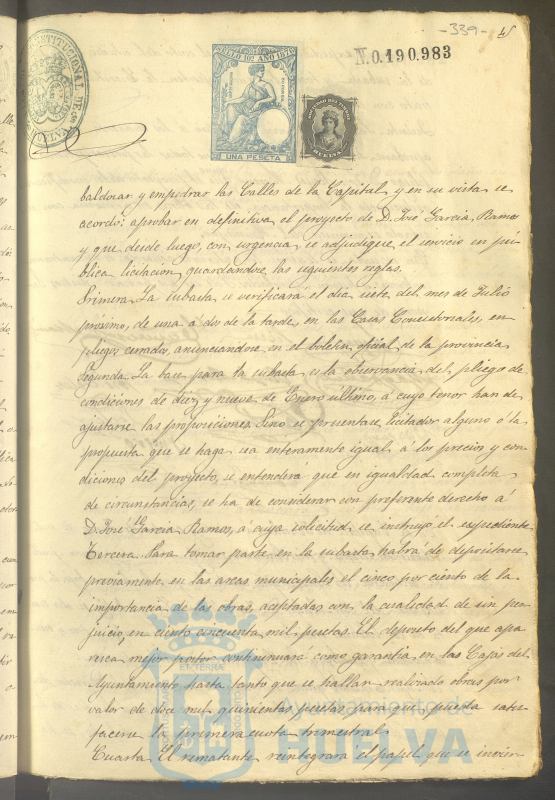 -339-
SELLO 10º AÑO 1876
UNA PESETA
N.0.190.983
baldosar y empedrar las Calles de la Capital y en su vista se
acordó: aprobar en definitiva el proyecto de D. José Garcia Ramos
y que desde luego, con urgencia se adjudique el servicio en pú-
blica licitacion, guardandose las siguientes reglas.
Primera. La subasta se verificará el dia siete del mes de Julio
próximo, de una a dos de la tarde, en las Casas Consistoriales, en
pliegos cerrados, anunciandose en el boletin oficial de la provincia
Segunda. La base para la subasta es la observancia del pliego de
condiciones de diez y nueve de Enero último, á cuyo tenor han de
ajustarse las proposiciones. Sino se presentase licitador alguno ó la
propuesta que se haga sea enteramente igual á los precios y con-
diciones del proyecto, se entenderá que en igualdad completa
de circunstancias, se ha de considerar con preferente derecho á
D. José Garcia Ramos, a cuya solicitud se instruyó el expediente
Tercera. Para tomar parte en la subasta habrá de depositarse
previamente en las arcas municipales el cinco por ciento de la
importancia de las obras, aceptadas con la cualidad de sin per-
juicio, en ciento cincuenta mil pesetas. El deposito del que apa-
resca mejor postor continuará como garantia en las Cajas del
Ayuntamiento hasta tanto que se hallan realizado obras por
valor de doce mil quinientas pesetas para que pueda satis-
facerse la primera cuota trimestral
Cuarta. El rematante reintegrará el papel que se invier-
Ayuntamiento de
HUELVA